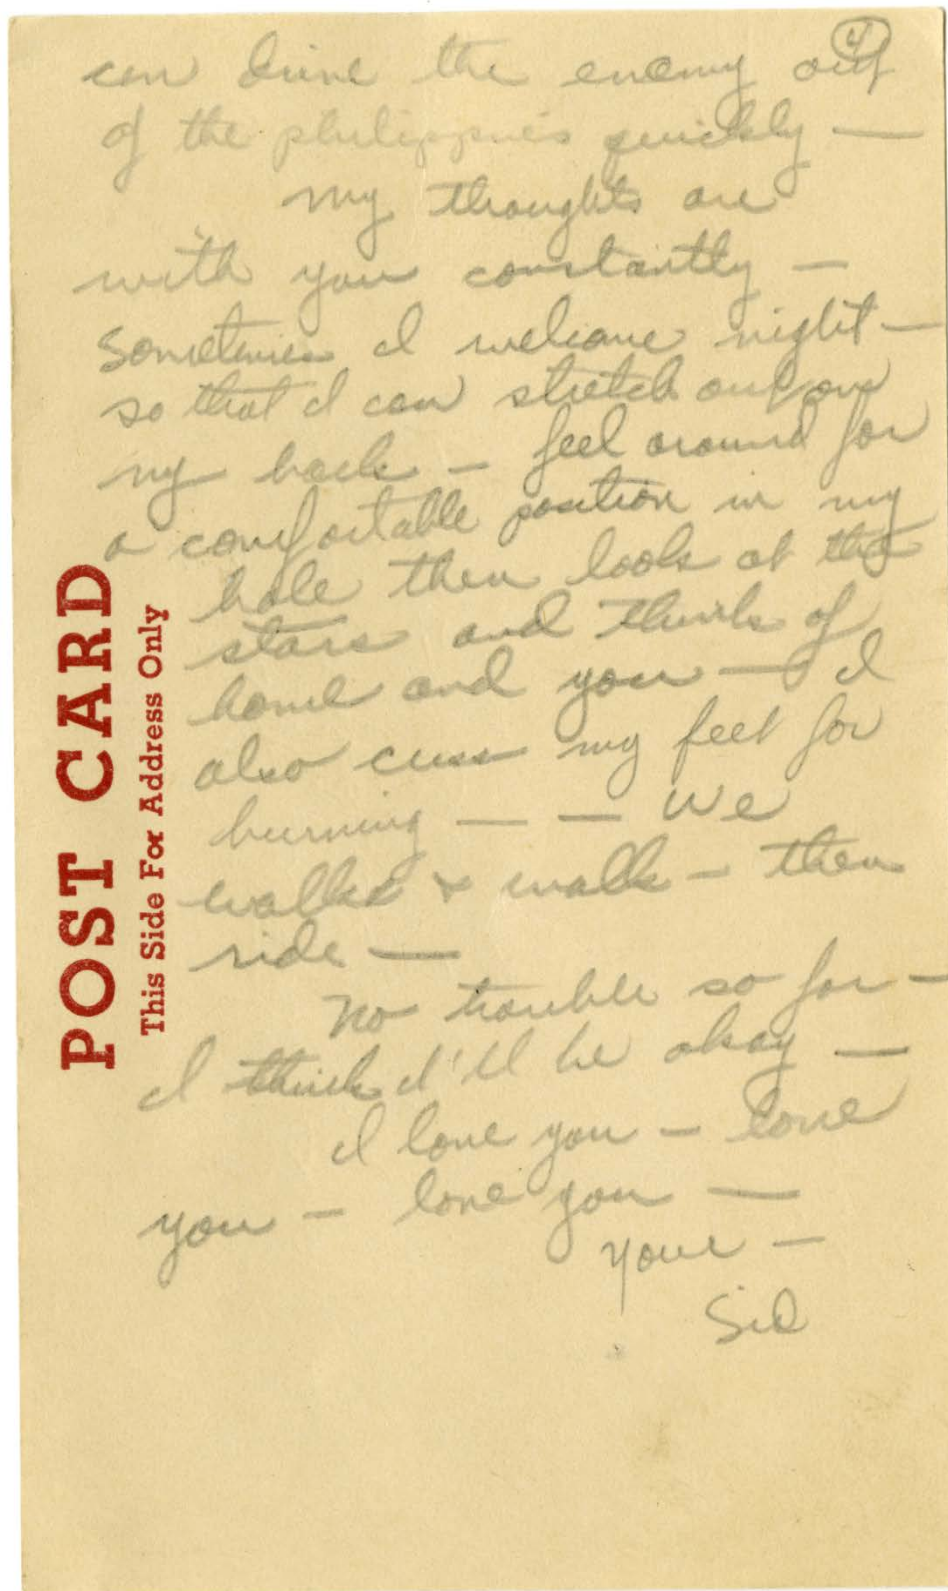 4
can drive the enemy out
of the philippines quickly —
my thoughts are
with you constantly —
sometimes I welcome night —
so that I can stretch out on
my back — feel around for
a comfortable position in my
hole then look at the
stars and think of
home and you — I
also cuss my feet for
burning — — We
walk & walk — then
ride —
No trouble so far —
I think I'll be okay —
I love you — love
you — love you —
your —
Sid
POST CARD
This Side For Address Only